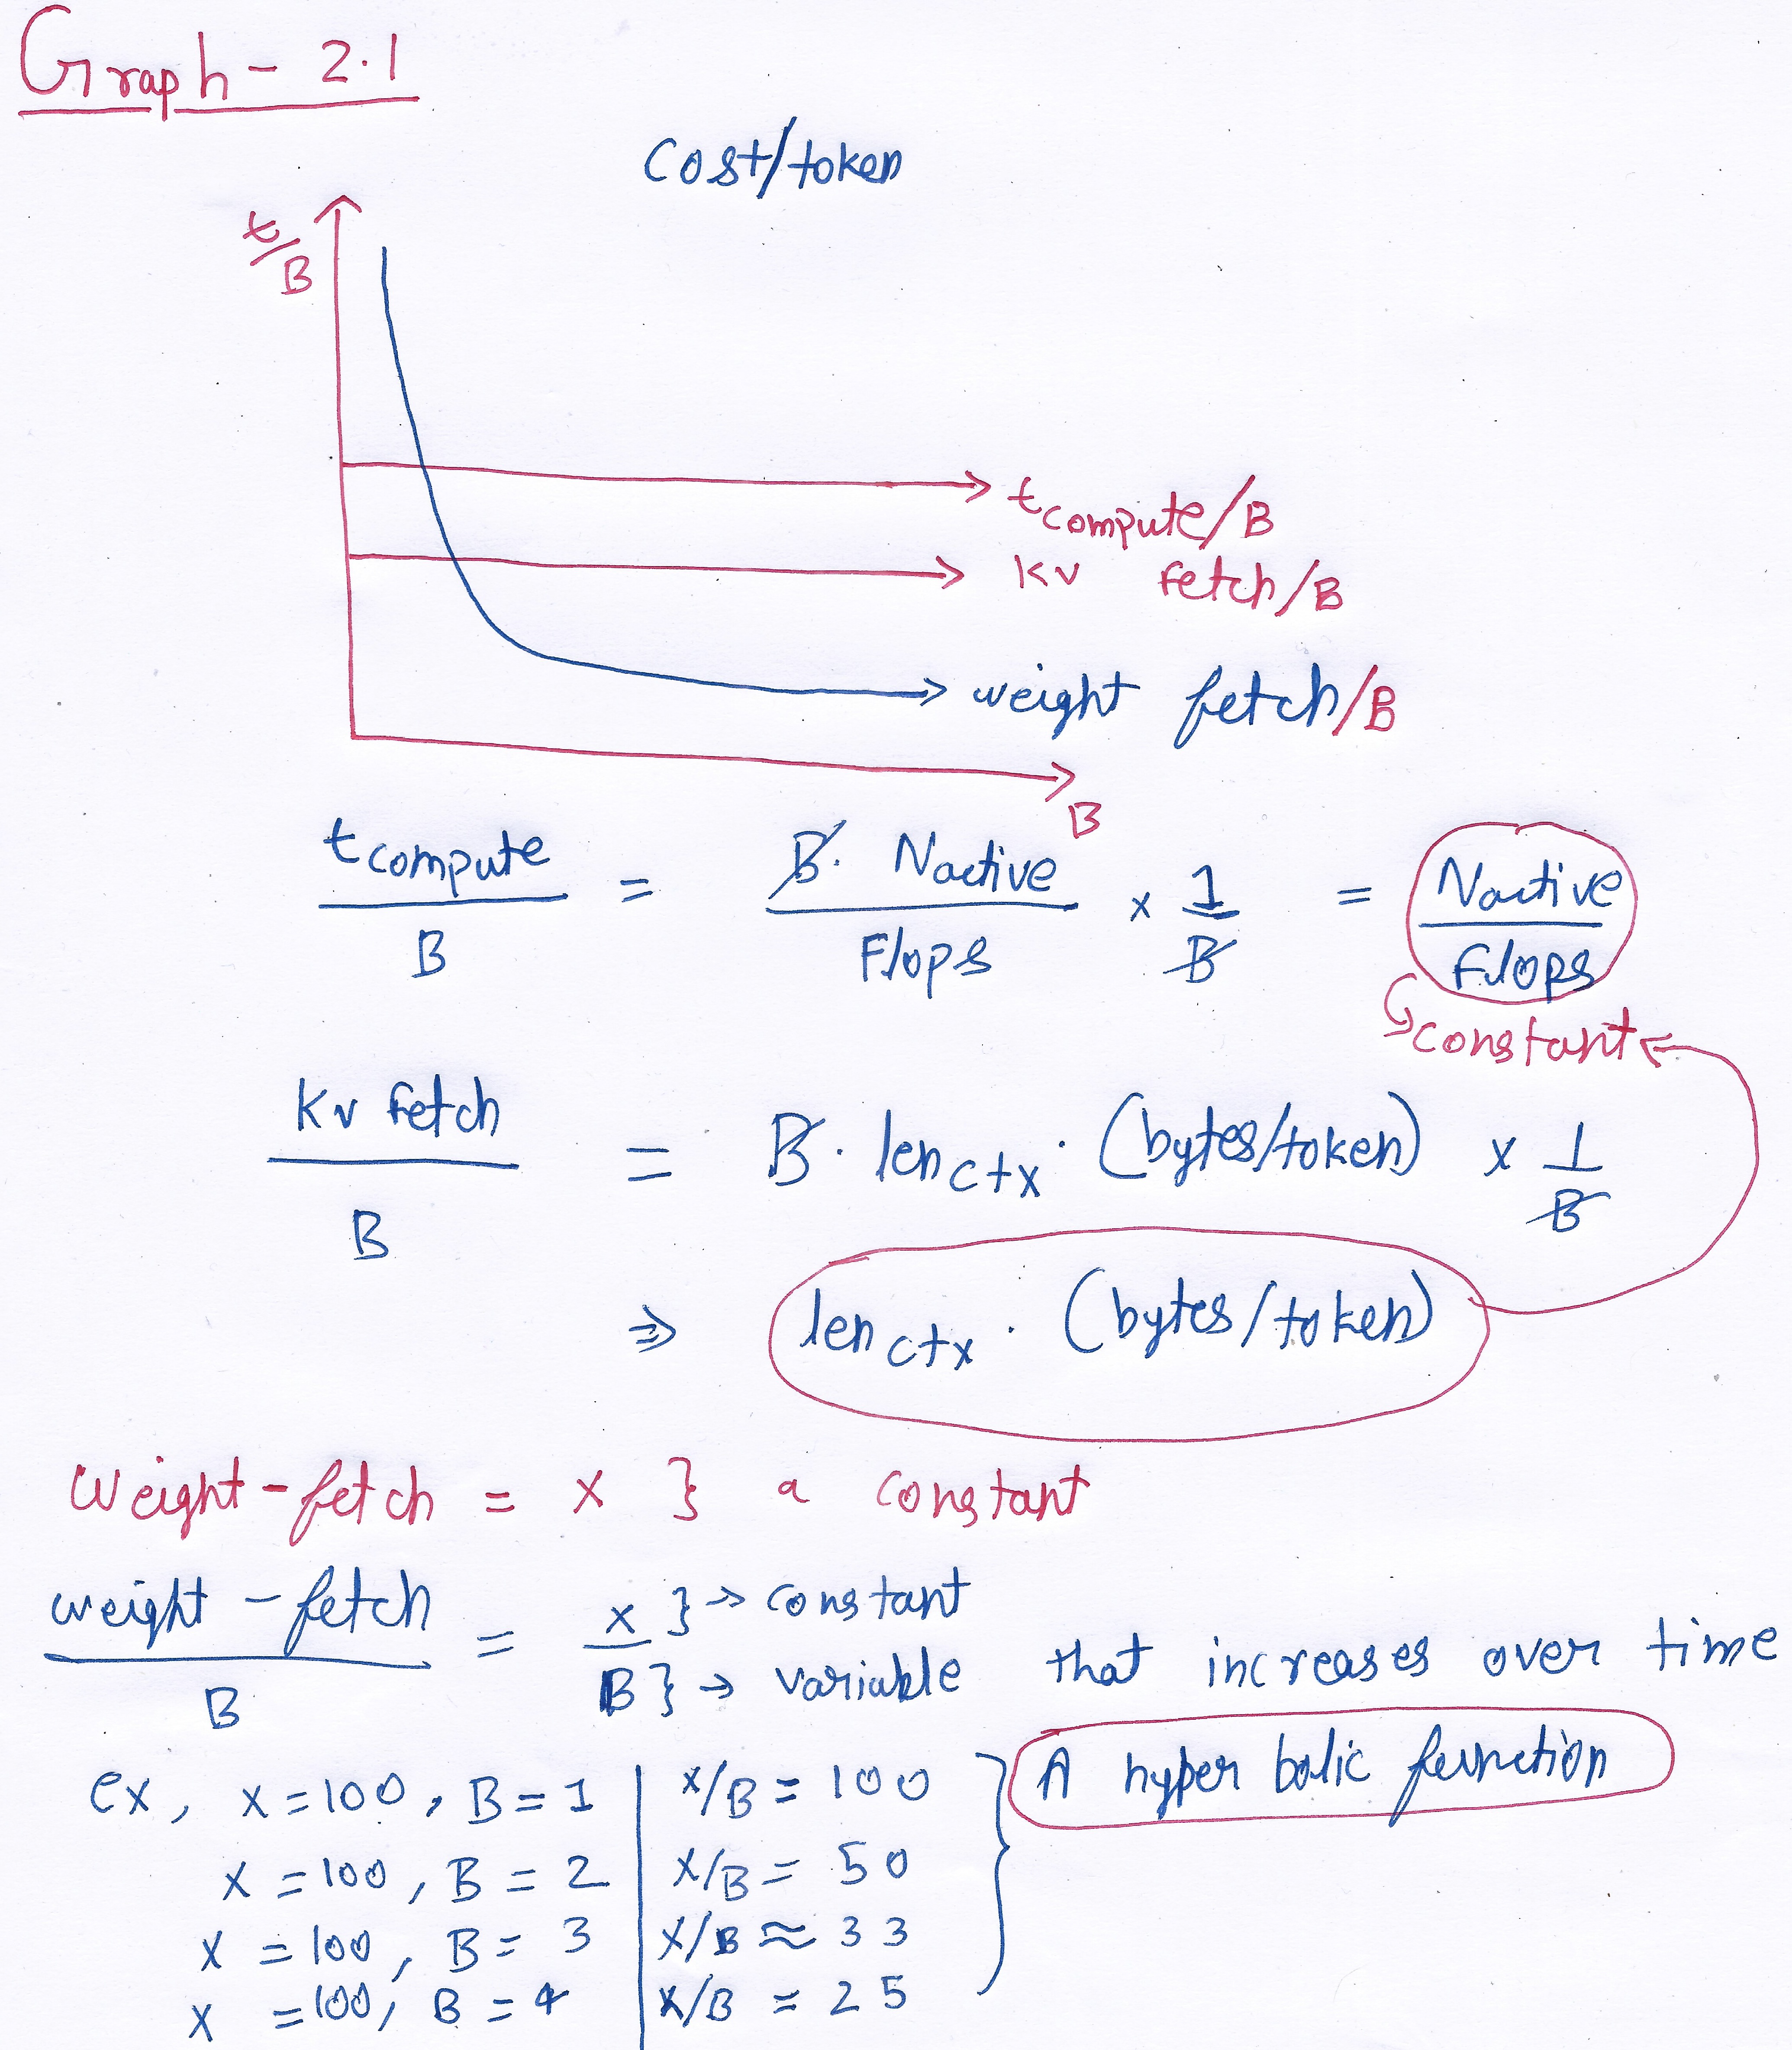 Graph - 2.1
Cost/token
t/B
tcompute/B
Kv fetch/B
weight fetch/B
B
tcompute/B = B. Nactive/Flops × 1/B = Nactive/Flops
constant
Kv fetch/B = B. lenctx. (bytes/token) × 1/B
⇒ lenctx. (bytes/token)
Weight-fetch = x } a constant
weight-fetch/B = x/B
x } → constant
B } → variable that increases over time
ex, x=100, B=1 | x/B = 100
x=100, B=2 | x/B = 50
x=100, B=3 | x/B ≈ 33
x=100, B=4 | x/B = 25
} A hyper bolic function